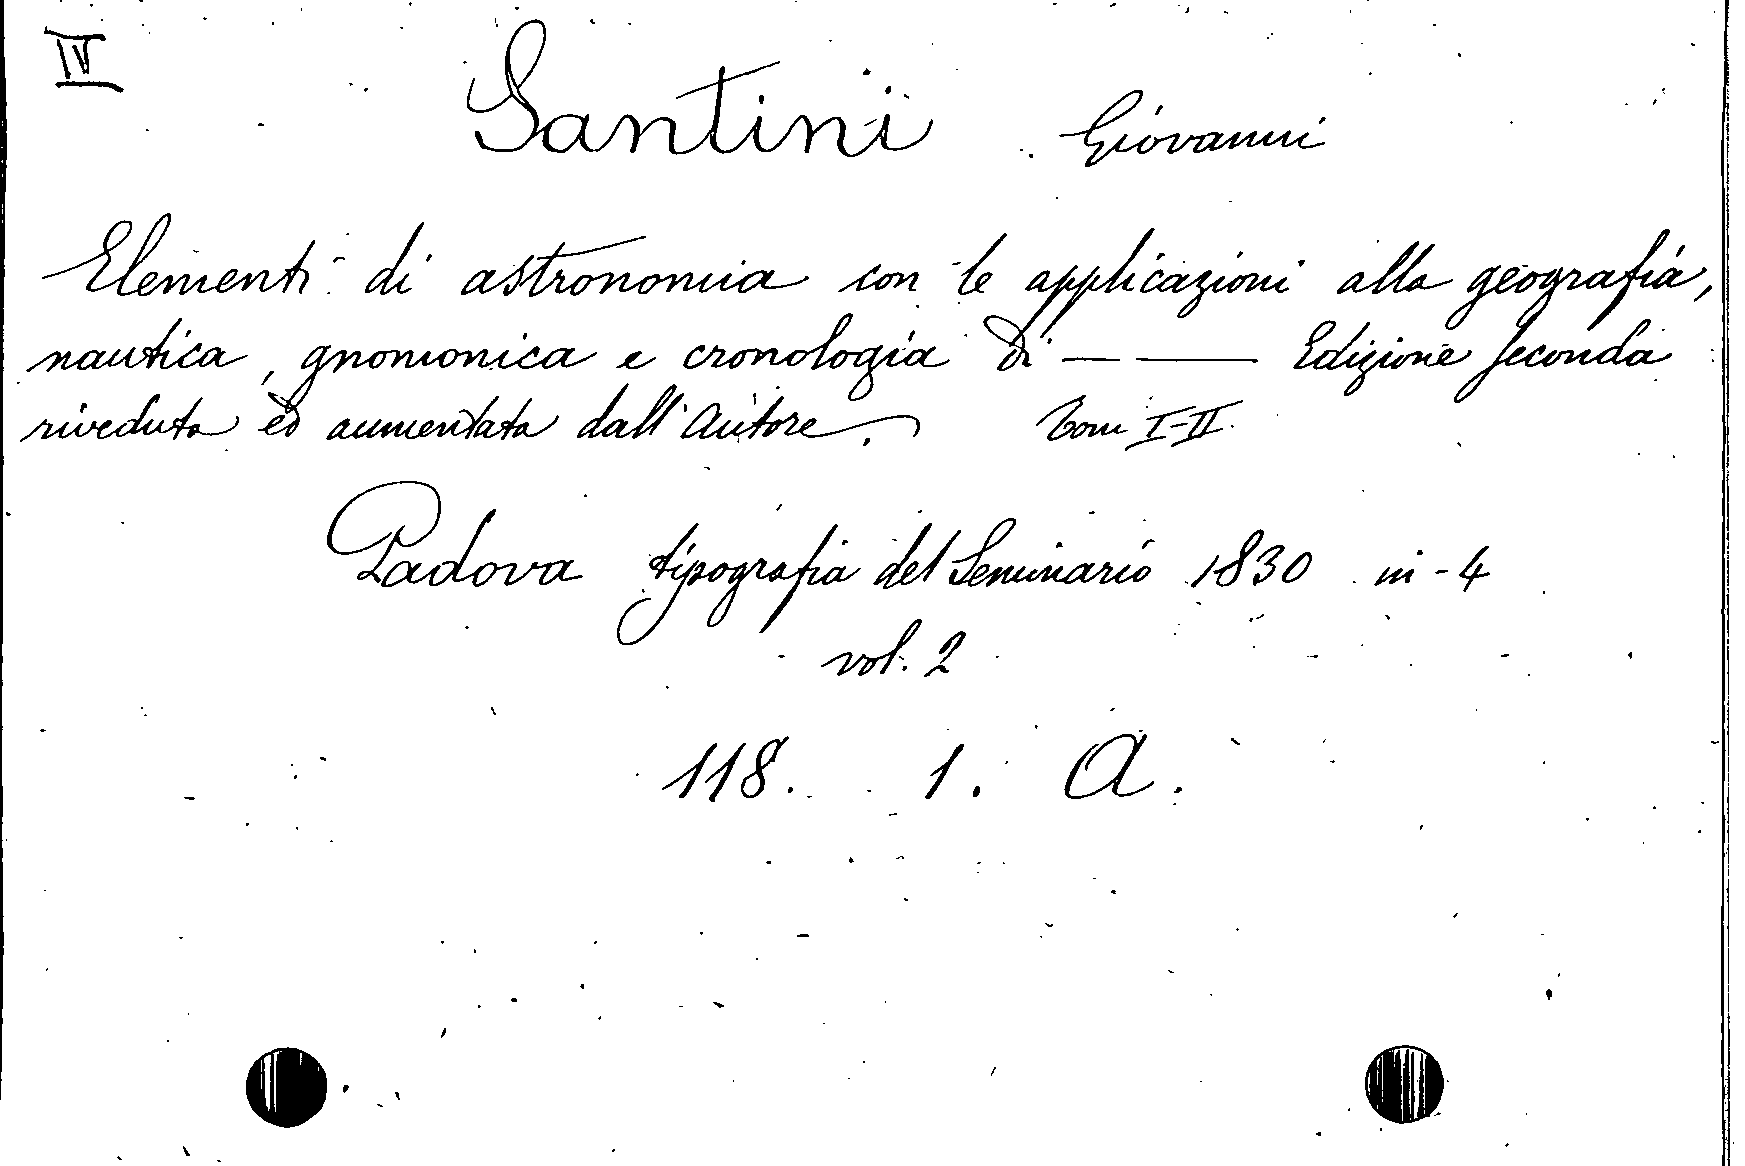 IV
Santini Giovanni
Elementi di astronomia con le applicazioni alla geografia,
nautica, gnomonica e cronologia di — —— Edizione seconda
riveduta ed aumentata dall'Autore. Tomi I-II.
Padova tipografia del Seminario 1830 in-4
vol. 2
118. 1. A.